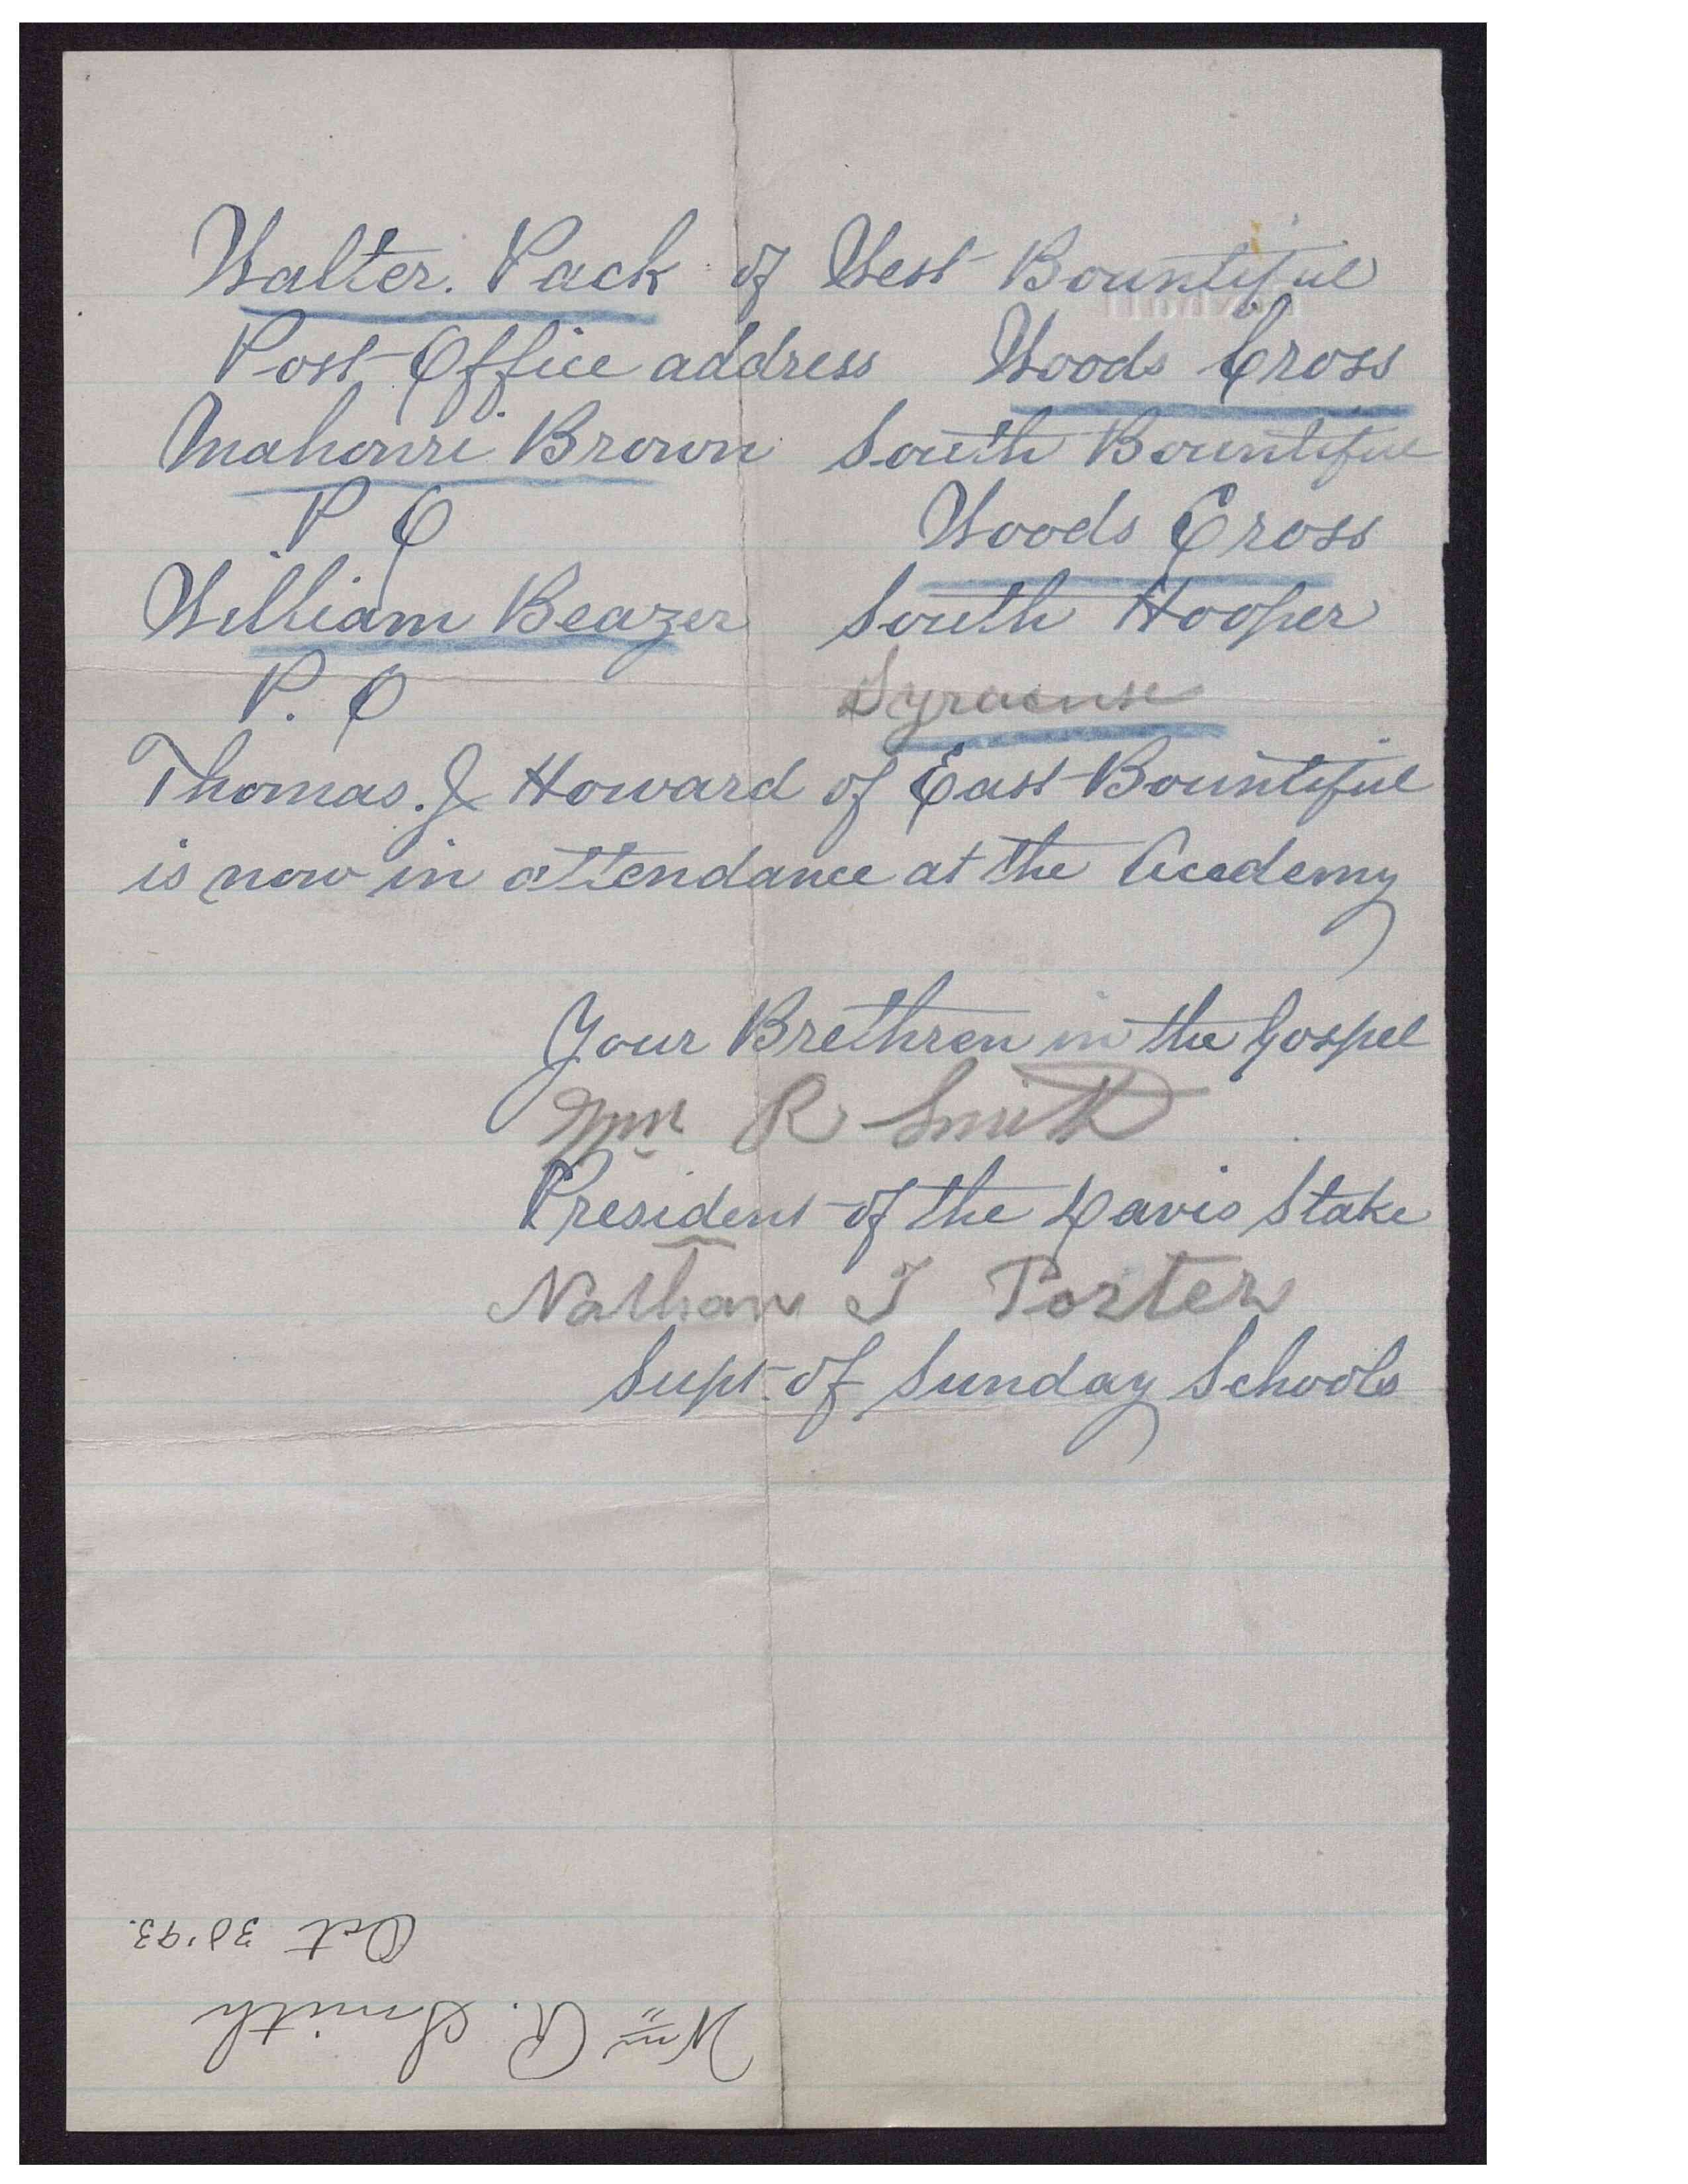 Walter. Pack of West Bountiful
Post Office address Woods Cross
Mahonri Brown South Bountiful
P O Woods Cross
William Beazer South Hooper
P. O Syracuse
Thomas. J Howard of East Bountiful
is now in attendance at the Acedemy
Your Brethren in the Gospel
Wm R Smith
President of the Davis Stake
Nathan T Porter
Supt of Sunday Schools
Wm R. Smith
Oct 30 '93.